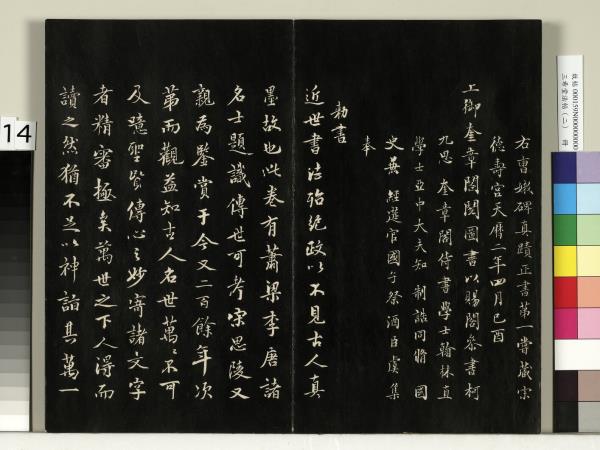 右曹娥碑真蹟正書第一嘗藏宋
德壽宮天曆二年四月己酉
上御奎章閣閱圖書以賜閣參書柯
九思 奎章閣侍書學士翰林直
學士亞中大夫知 制誥同脩 國
史兼 經筵官國子祭酒臣虞集
奉
勑書
近世書法殆絕政以不見古人真
墨故也此卷有蕭梁李唐諸
名士題識傳世可考宋思陵又
親為鑒賞于今又二百餘年次
第而觀益知古人名世萬萬不可
及噫聖賢傳心之妙寄諸文字
者精審極矣萬世之下人得而
讀之然猶不足以神詣其萬一
14
三希堂法帖(二) 冊